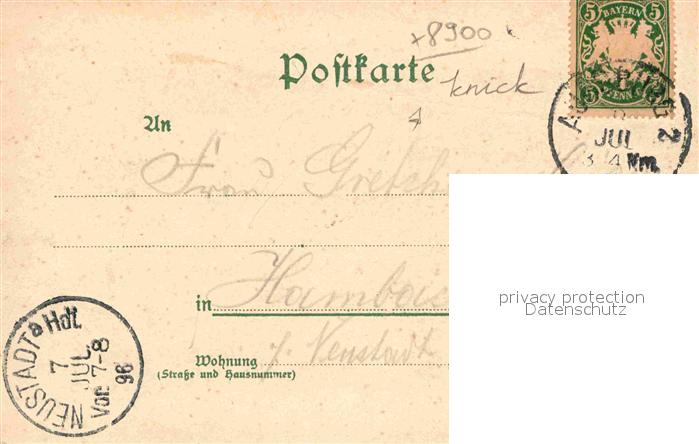 x8900
5 BAYERN 5
5 PFENNIG 5
Postkarte
knick
An
JUL
3-4 Nm.
Frau
in Hambac
privacy protection
Datenschutz
Wohnung
(Straße und Hausnummer)
Neustadt
NEUSTADT a Hdt.
7
JUL
Vor. 7-8
96